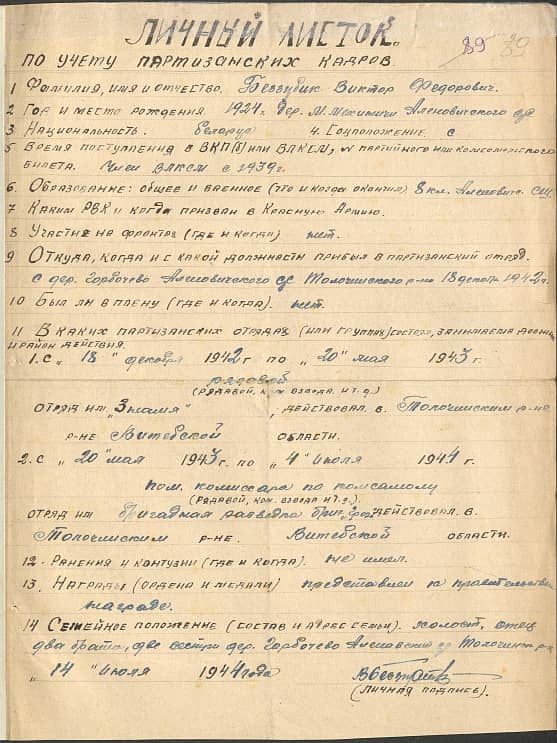 89 39
ЛИЧНЫЙ ЛИСТОК
ПО УЧЕТУ ПАРТИЗАНСКИХ КАДРОВ.
1 Фамилия, имя и отчество. Беззубик Виктор Федорович.
2 Год и место рождения. 1924г. дер. Алёновичского с/с
3 Национальность. беларус 4. Соцположение. с
5 Время поступления в ВКП(б) или ВЛКСМ, № партийного или комсомольского
билета. Член ВЛКСМ с 1939г.
6. Образование: общее и военное (что и когда окончил) 8 кл. СШ.
7 Каким РВК и когда призван в Красную Армию.
8 Участие на фронтах (где и когда) нет.
9 Откуда, когда и с какой должности прибыл в партизанский отряд.
с дер. Горбачево Алёновичского с/с Толочинского р-на 18 декабря 1942г.
10 Был ли в плену (где и когда). нет.
11 В каких партизанских отрядах (или группах) состоял, занимаемая должн.
и район действия.
1. С „ 18 " декабря 1942 г по „ 20" мая 1943 г.
рядовой
(рядовой, ком. взвода и т.д.)
отряд им. „Знамя" , действовал в Толочинским р-не
р-не Витебской области.
2. С „ 20" мая 1943 г. по „ 4" июля 1944 г.
пом. комиссара по комсамолу
(рядовой, ком. взвода и т.д.).
отряд им бригадная разведка действовал в
Толочинском р-не. Витебской области.
12. Ранения и контузии (где и когда). не имел.
13. Награды (ордена и медали) представлен к правительствен
награде.
14 Семейное положение (состав и адрес семьи). холост, отец
два брата, две сестры дер. Горбачево с/с Толочинск р-на
„ 14 " июля 1944 года
(личная подпись).